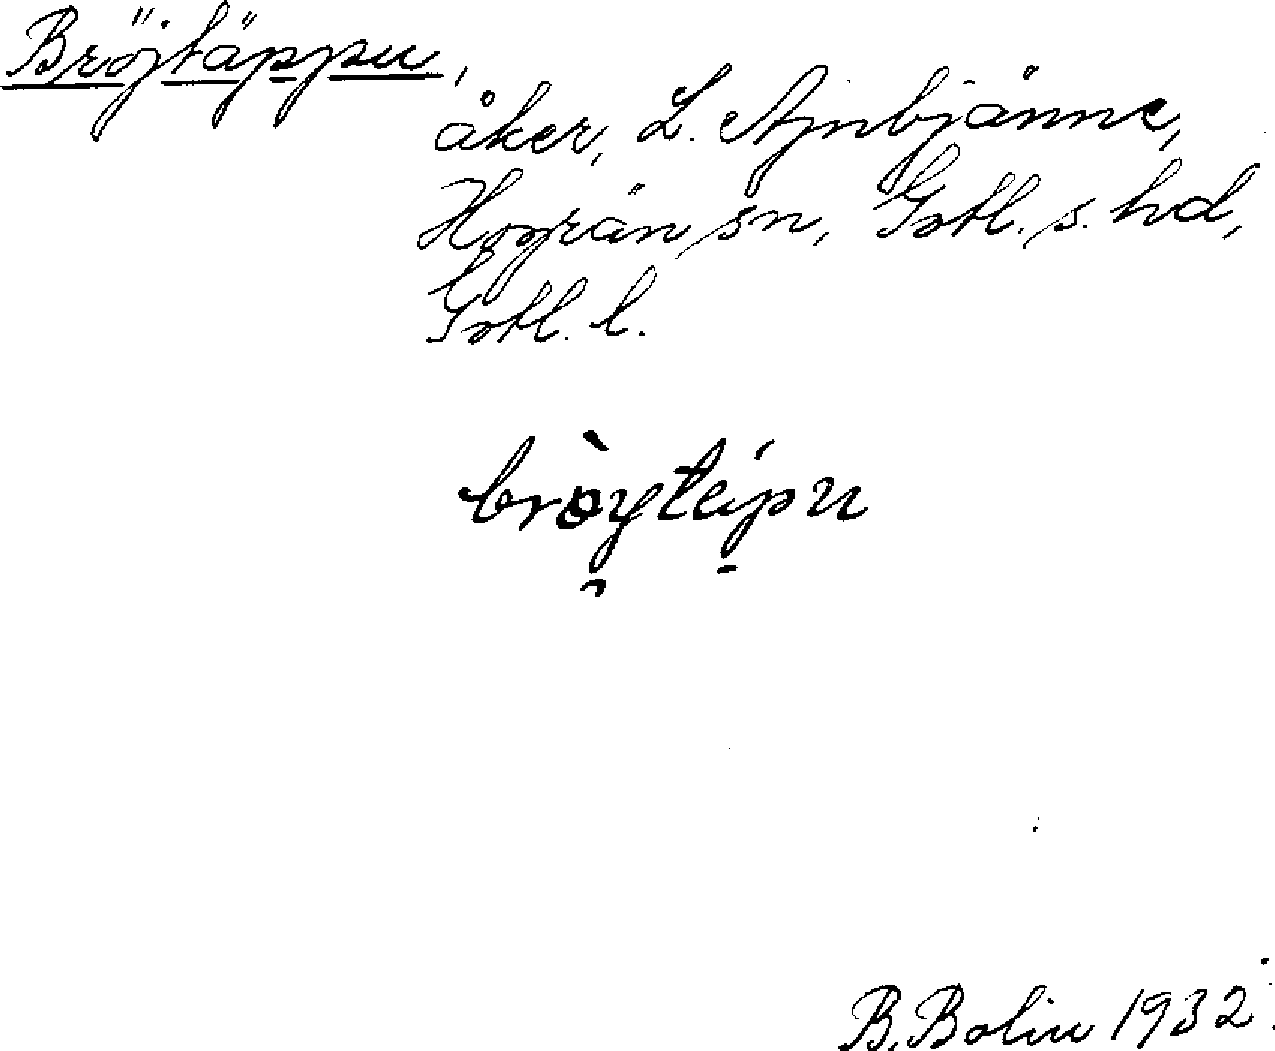 Bröjtäppu,
åker, L. Ajnbjänne,
Hogrän sn, Gotl. s. hd,
Gotl. l.
bròyteípu
B. Bolin 1932